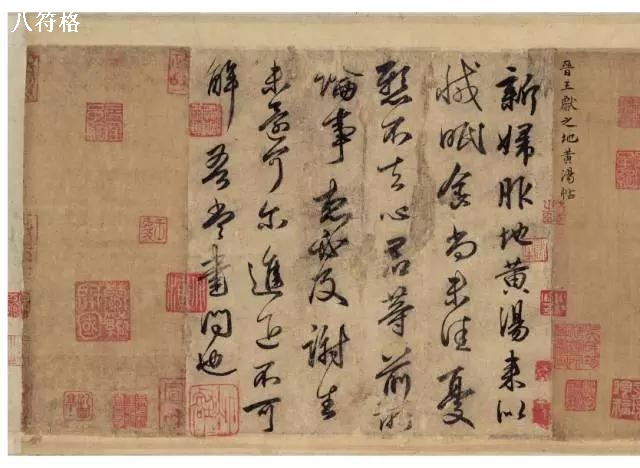 八符格
晉王獻之地黄湯帖
新婦服地黄湯来似
減眠食尚未佳憂
懸不去心君等前所
論事想必及謝生
未還可爾進退不可
解吾當書問也